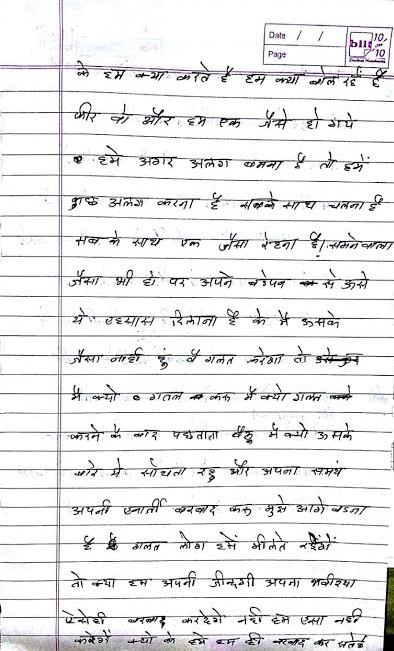 Date / /
Page
के हम क्या करते है हम क्या बोल रहे है
फीर वो और हम एक जैसे हो गये
हमे अगर अलग बनना है तो हमें
कुछ अलग करना है सबके साथ चलना है
सब के साथ एक जैसा रेहना है। सामनेवाला
जैसा भी हो पर अपने बडेपन से उसे
ये एहसास दिलाना है के मै उसके
जैसा नाही हुं वे गलत करेगा तो
मै क्यो गतल करु मै क्यो गलत
करने के बाद पछताता बैठु मैं क्यो उसके
बारे मे सोचता रहु और अपना समय
अपनी एनर्जी बरबाद करु मुझे आगे बडना
है गलत लोग हमें मीलते रहेंगें
तो क्या हम अपनी जीन्दगी अपना भवीश्या
ऐसेही बरबाद करदेगे नही हमे एसा नही
करेगें क्यो के हमे हम ही बरबाद कर सकते